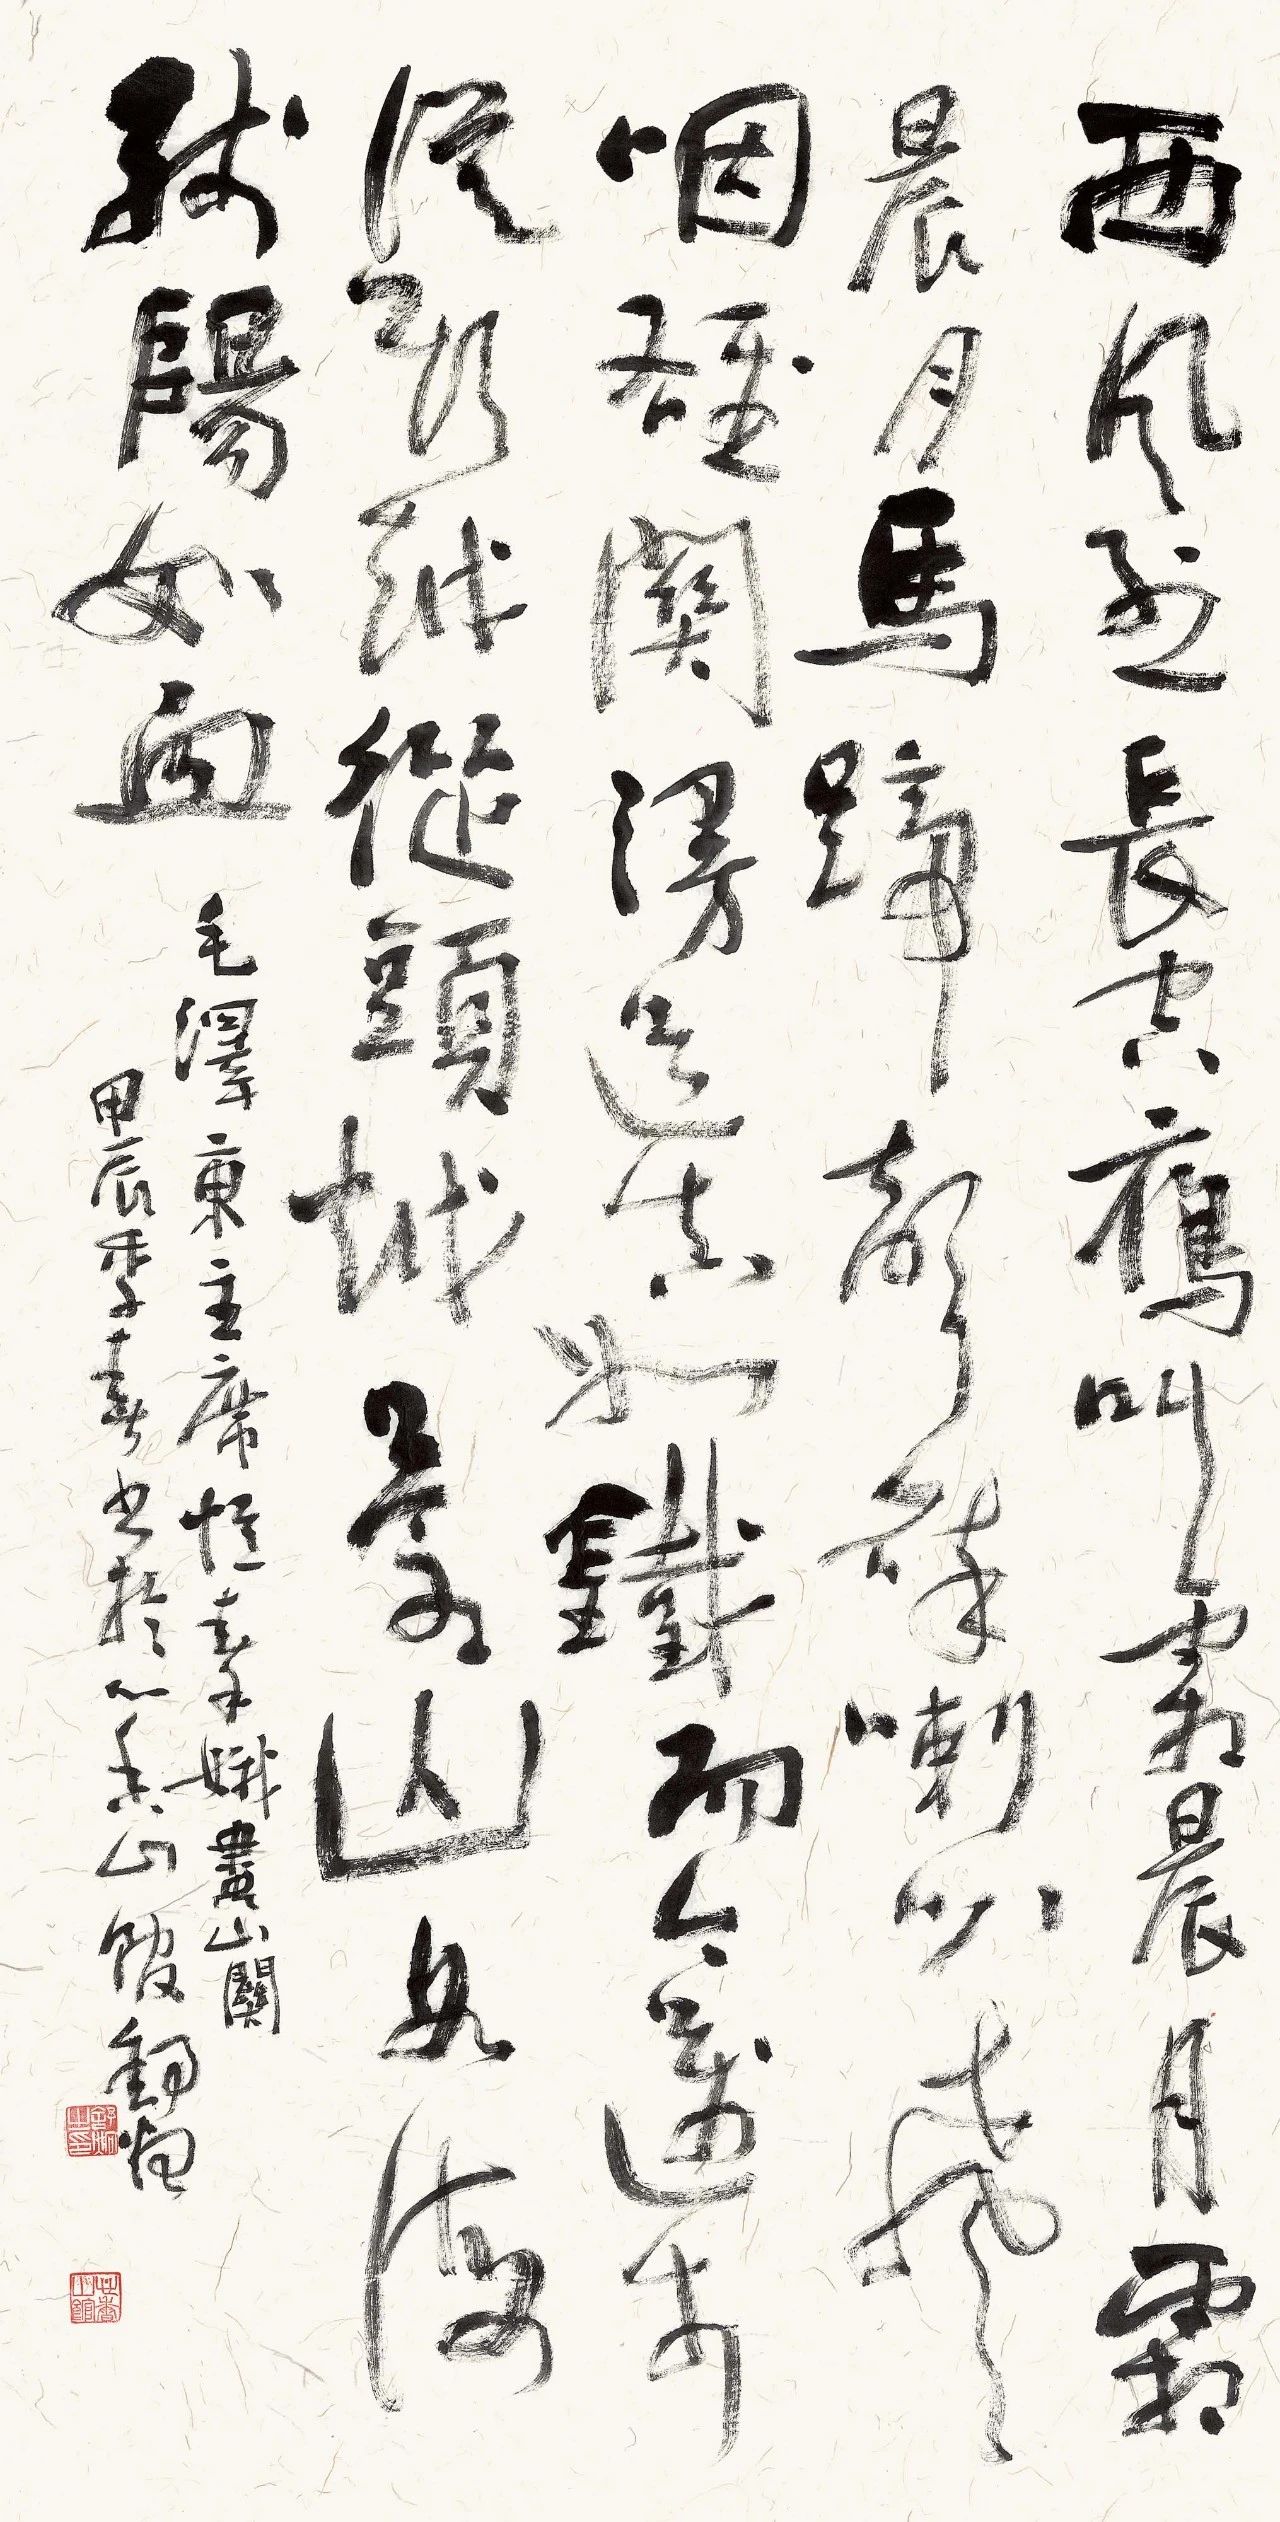 西風烈長空鷹叫霜晨月霜
晨月馬蹄聲碎喇叭聲
咽雄關漫道真如鐵而今邁步
從頭越從頭越蒼山如海
殘陽如血
毛澤東主席憶秦娥婁山關
甲辰季春書於心香山館舒炯
舒炯之印
心香山館